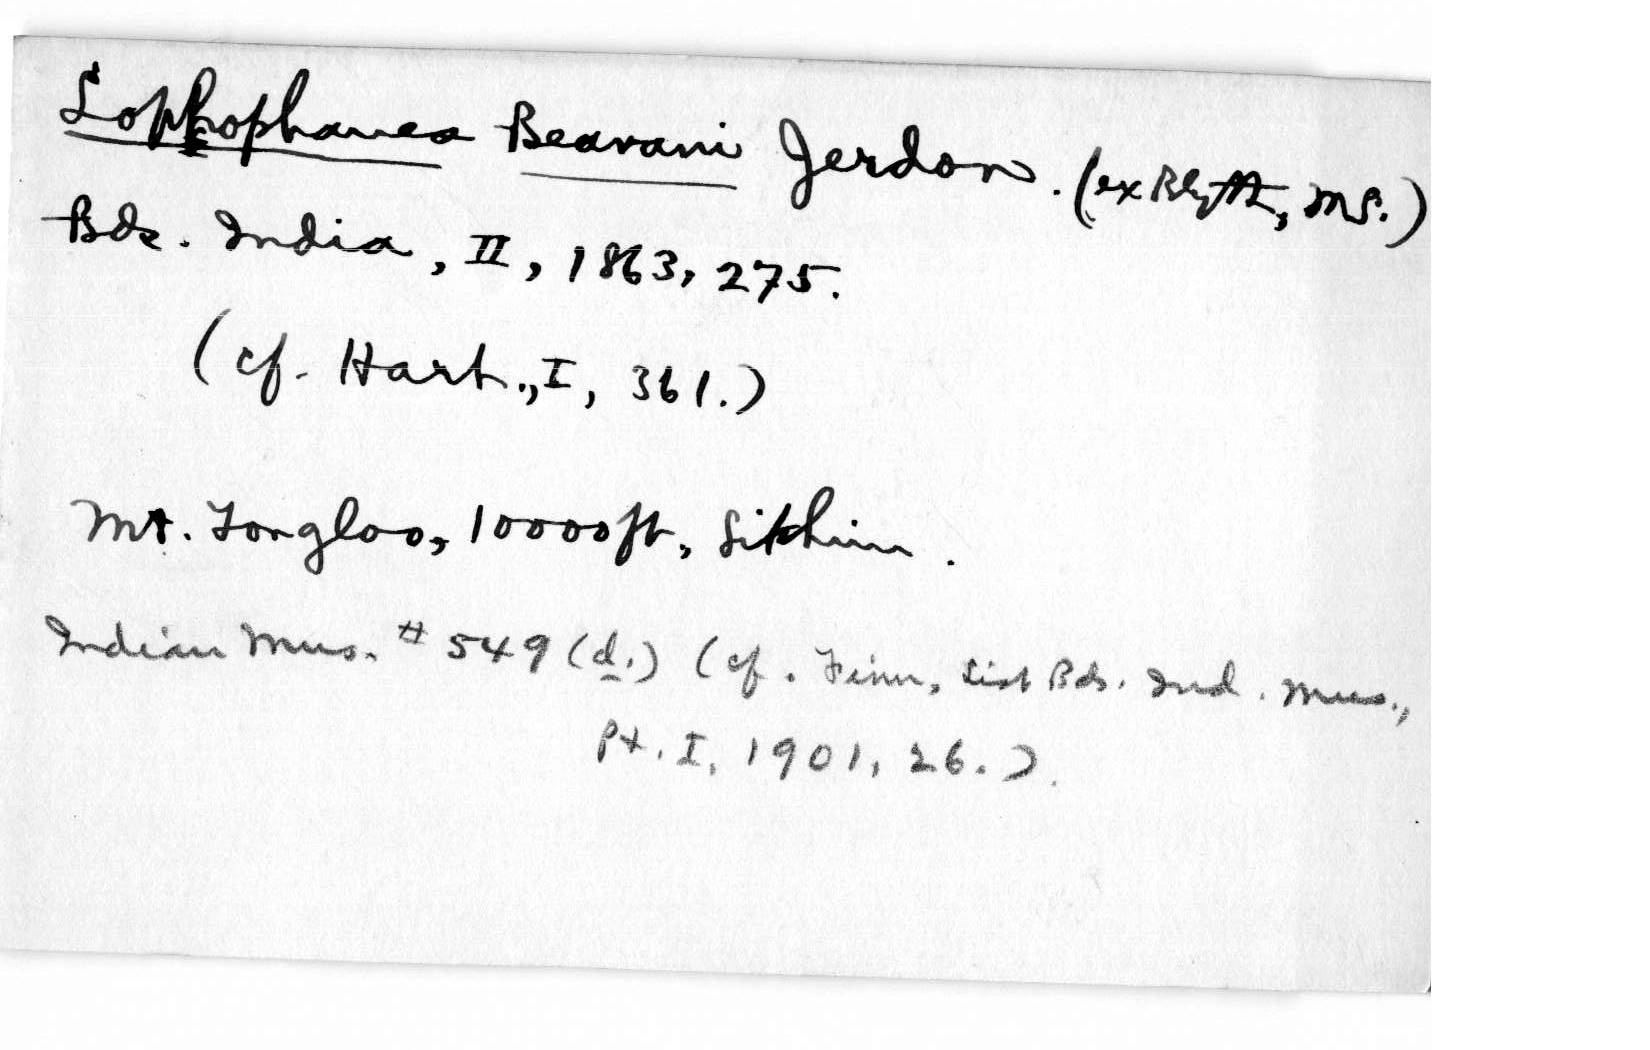 Lophophanes Beavani Jerdon. (ex Blyth, MS.)
Bds. India, II, 1863, 275.
(cf. Hart., I, 361.)
Mt. Tongloo, 10000ft, Sikhim.
Indian Mus. # 549 (d.) (cf. Finn, List Bds. Ind. Mus.,
Pt. I, 1901, 26.).